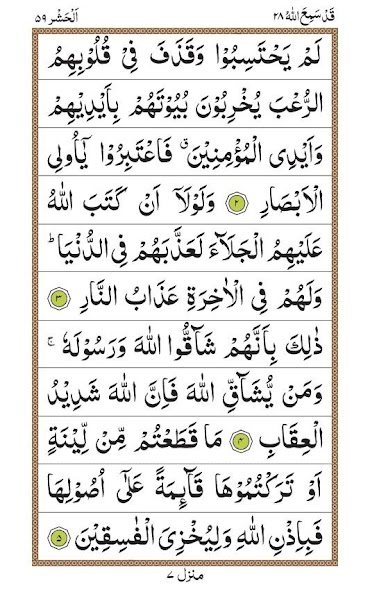 قَدْ سَمِعَ اللهُ ۲۸ اَلْحَشْر ۵۹
لَمْ يَحْتَسِبُوْا وَقَذَفَ فِيْ قُلُوْبِهِمُ
الرُّعْبَ يُخْرِبُوْنَ بُيُوْتَهُمْ بِاَيْدِيْهِمْ
وَاَيْدِي الْمُؤْمِنِيْنَ ۗ فَاعْتَبِرُوْا يٰٓاُولِي
الْاَبْصَارِ ﴿۲﴾ وَلَوْلَاۤ اَنْ كَتَبَ اللهُ
عَلَيْهِمُ الْجَلَآءَ لَعَذَّبَهُمْ فِي الدُّنْيَا ؕ
وَلَهُمْ فِي الْاٰخِرَةِ عَذَابُ النَّارِ ﴿۳﴾
ذٰلِكَ بِاَنَّهُمْ شَآقُّوا اللهَ وَرَسُوْلَهٗ ۚ
وَمَنْ يُّشَآقِّ اللهَ فَاِنَّ اللهَ شَدِيْدُ
الْعِقَابِ ﴿۴﴾ مَا قَطَعْتُمْ مِّنْ لِّيْنَةٍ
اَوْ تَرَكْتُمُوْهَا قَآئِمَةً عَلٰٓى اُصُوْلِهَا
فَبِاِذْنِ اللهِ وَلِيُخْزِيَ الْفٰسِقِيْنَ ﴿۵﴾
منزل ۷